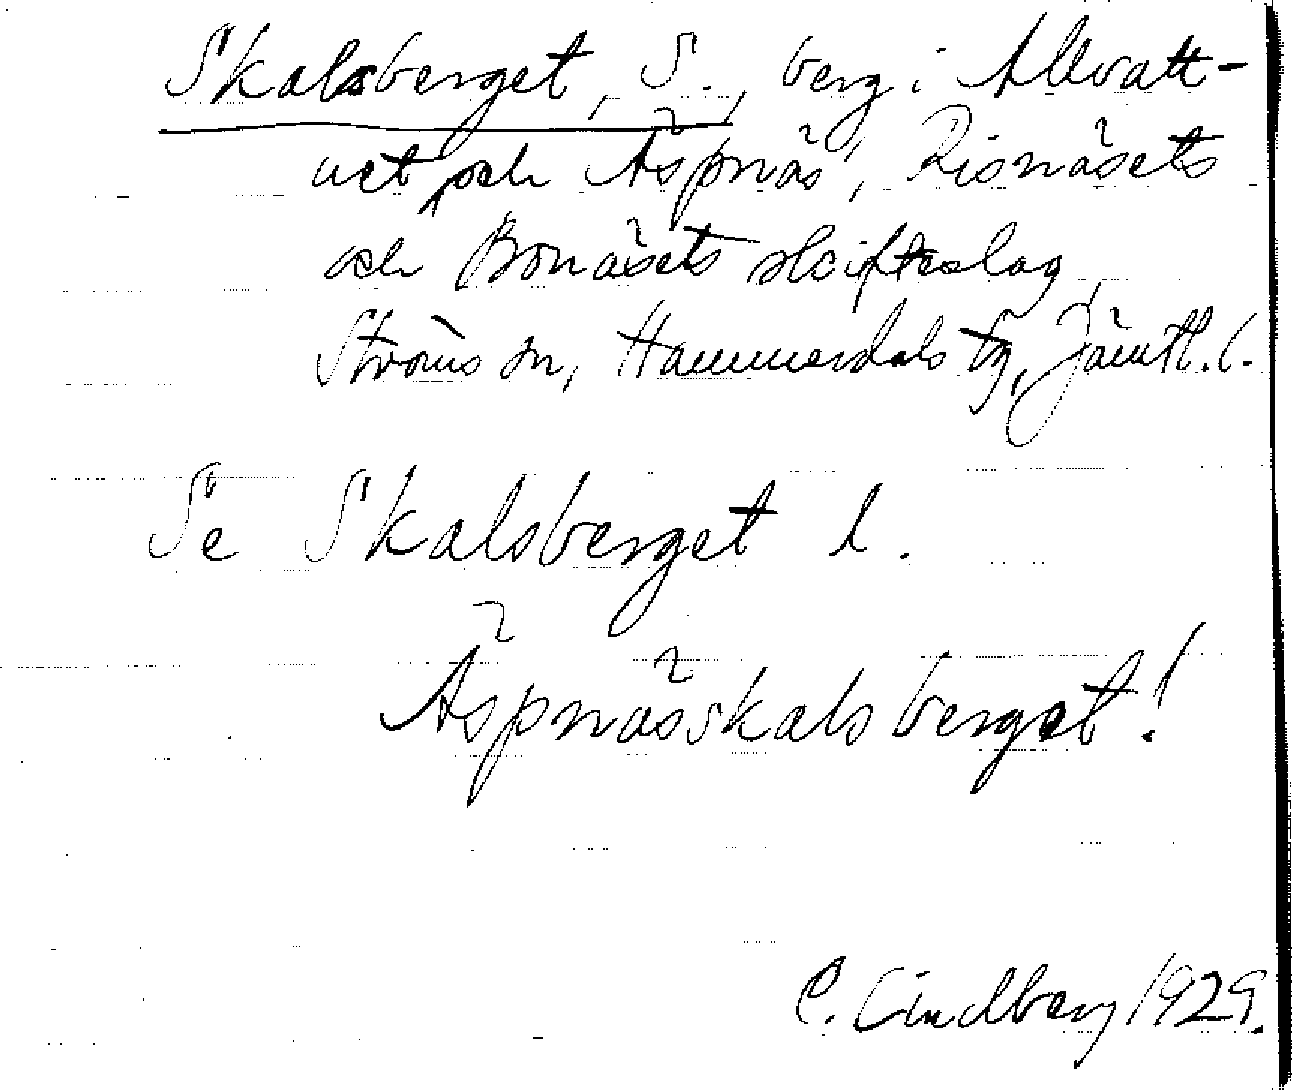 Skalsberget, S., berg i Allvatt-
net, och Äspnäs, Risnäsets
och Bonäsets skifteslag
Ströms sn, Hammerdals tg, Jämtl. l.
Se Skalsberget l.
Äspnässkalsberget!
C. Lindberg 1929.